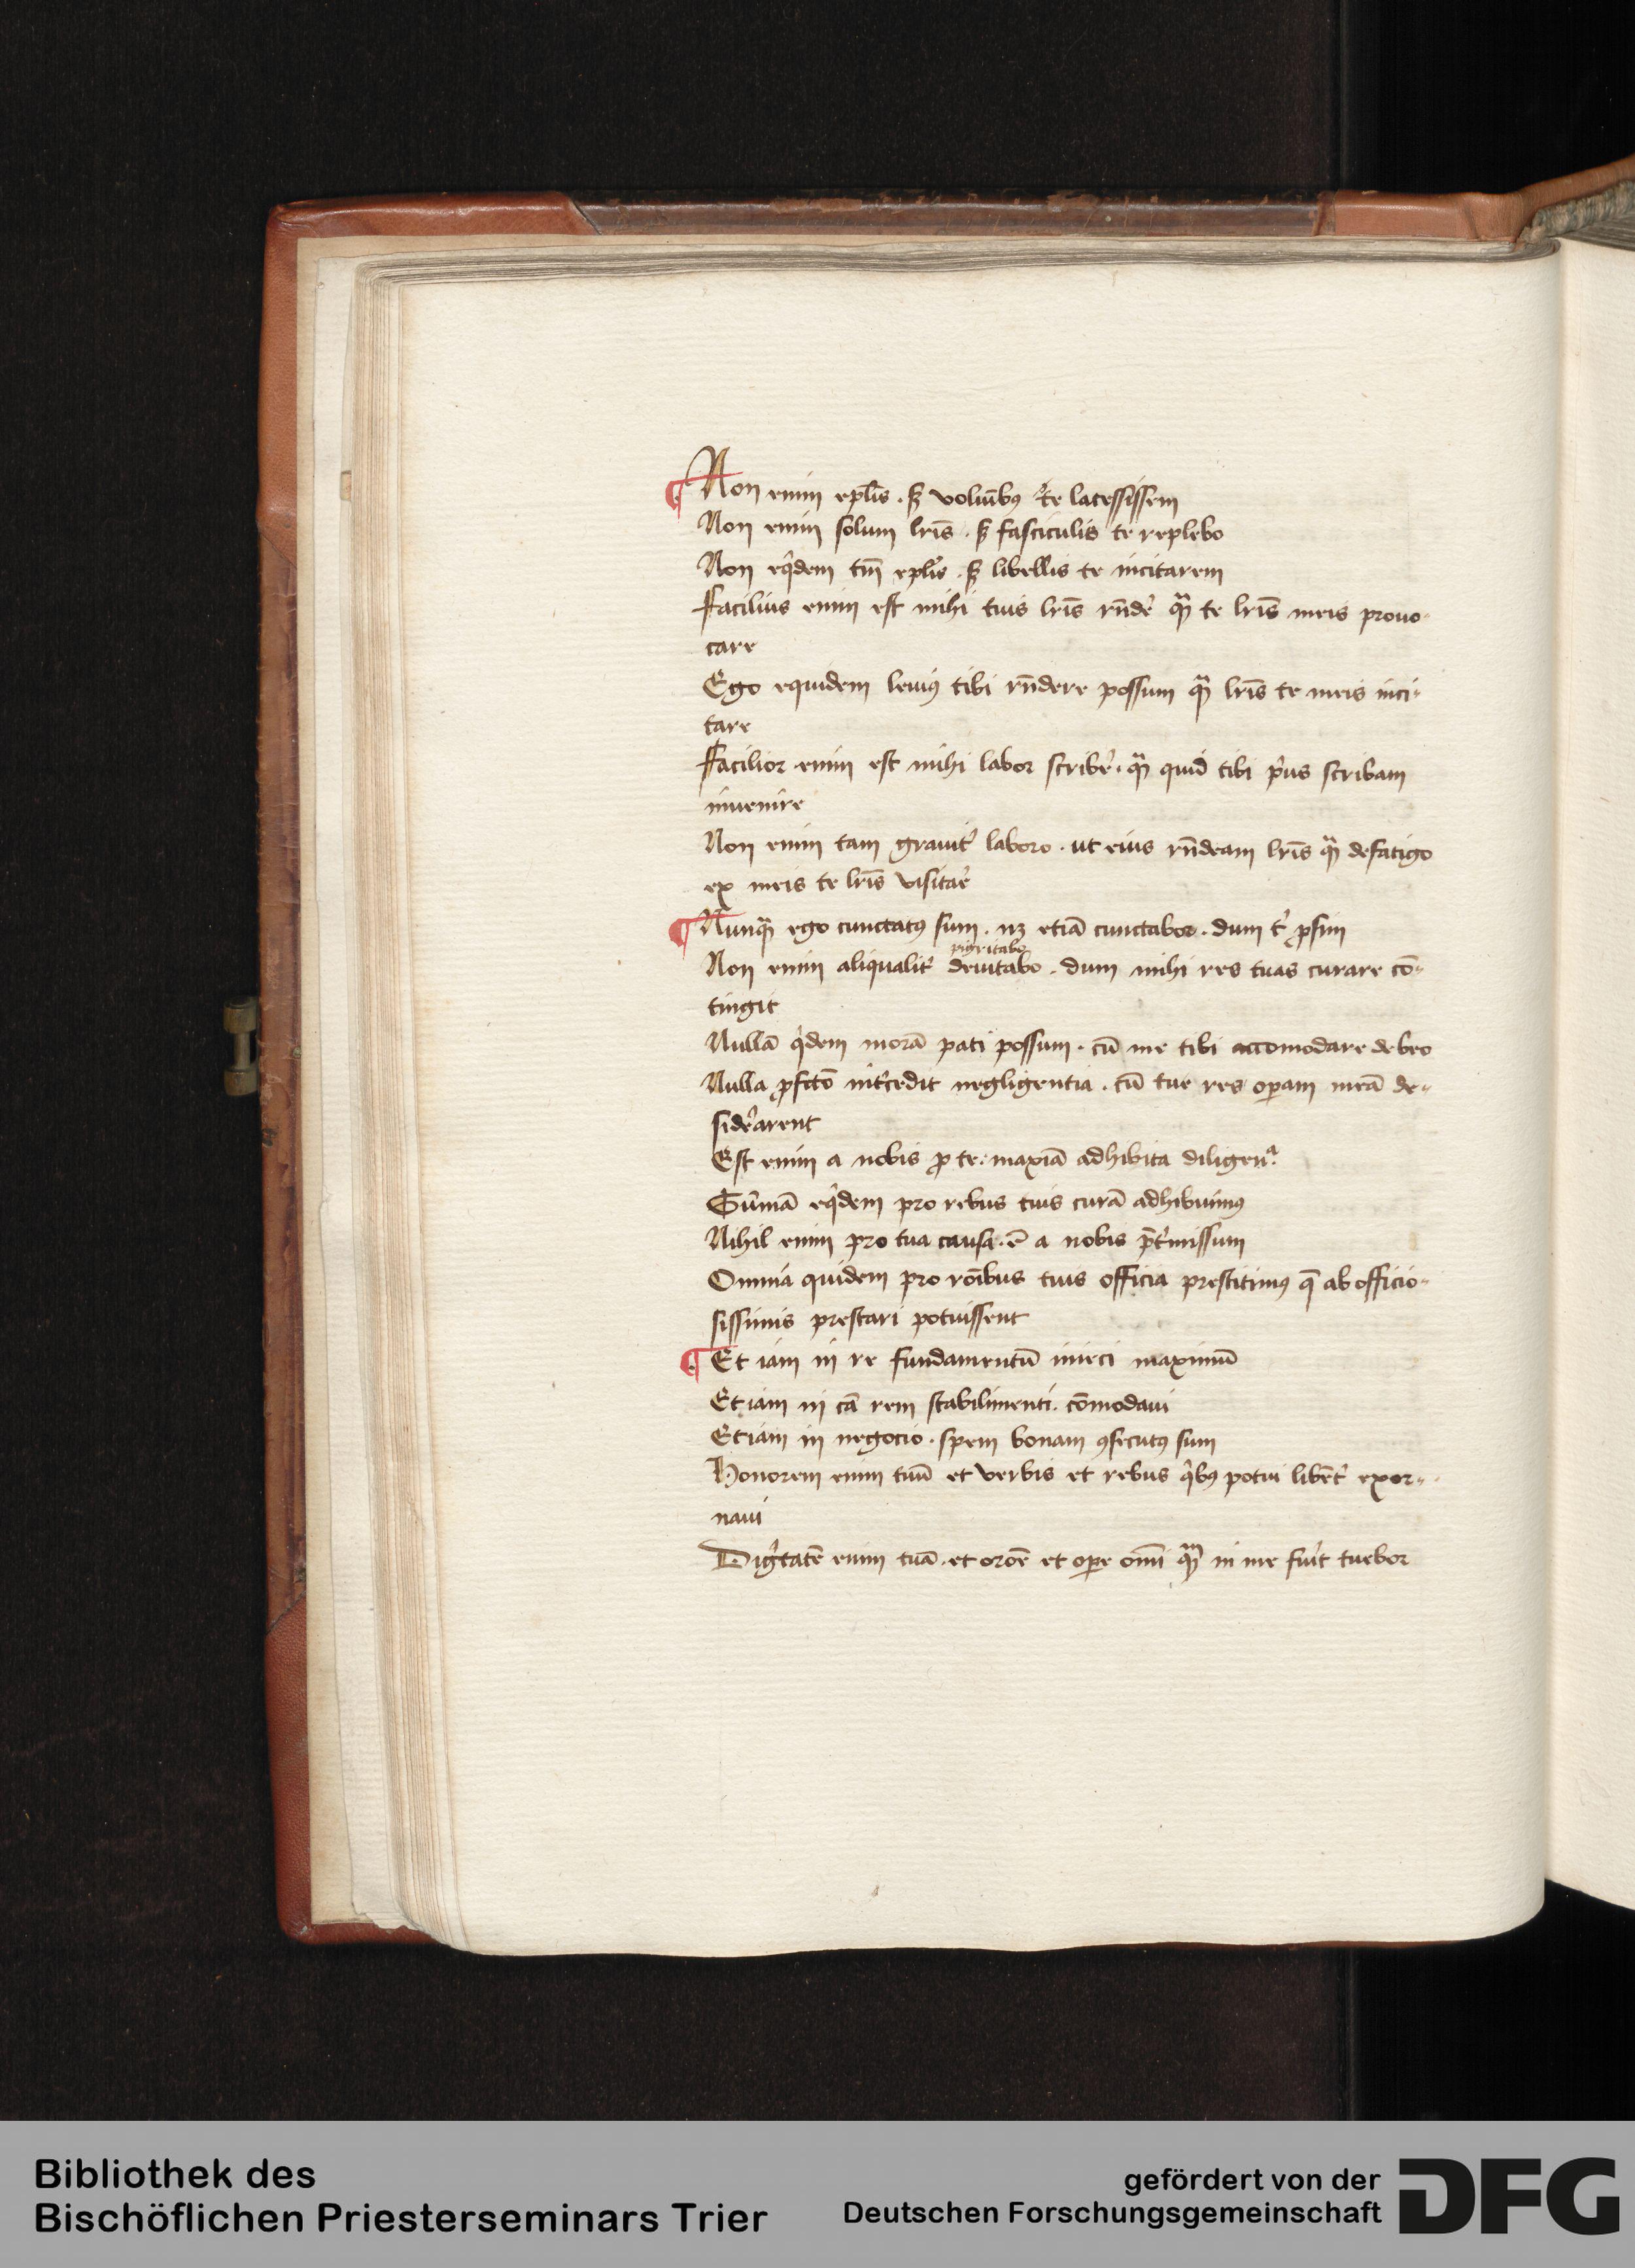 ¶ Non enim ep̄lis . sꝫ volūibꝰ te lacessissem
Non enim solum lr̄is . sꝫ fasciculis te replebo
Non eqͥdem tm̄ ep̄lis . sꝫ libellis te incitarem
Facilius enim est mihi tuis lr̄is rn̄de᷑ qᷓm te lr̄is meis prouo-
care
Ego equidem leuiꝰ tibi rn̄dere possum qᷓm lr̄is te meis inci-
tare
Facilior enim est mihi labor scribe᷑ . qᷓm quid tibi pͥus scribam
inuenire
Non enim tam grauit᷑ laboro . ut eius rn̄deam lr̄is qᷓm defatigo
ex meis te lr̄is visitar᷑
¶ Nunqᷓm ego cunctatꝰ sum . nꝫ etiā cunctabor . dum t͛ ꝓsim
pigritabo
Non enim aliqualit᷑ deuitabo . dum mihi res tuas curare cō-
tingit
Nullā qͥdem morā pati possum . cū me tibi accomodare debeo
Nulla ꝓfctō int᷑cedit negligentia . cū tue res oꝑam meā de-
side᷑arent
Est enim a nobis ꝓ te . maxīā adhibita diligenᵃ.
Sūmā eqͥdem pro rebus tuis curā adhibuimꝰ
Nihil enim pro tua causa . ē a nobis p̄t᷑missum
Omnia quidem pro rōibus tuis officia prestitimꝰ q̄ ab officio-
sissimis prestari potuissent
¶ Et iam in re fundamentū inieci maximū
Et iam in cā rem stabilimenti . cōmodaui
Et iam in negocio . spem bonam ꝯsecutꝰ sum
Honorem enim tuū et verbis et rebus qͥbꝰ potui libēt᷑ exor-
naui
Digͥtatē enim tuā . et oroē et oꝑe omī qᷓm in me fuīt tuebor
Bibliothek des
Bischöflichen Priesterseminars Trier
gefördert von der
Deutschen Forschungsgemeinschaft
DFG